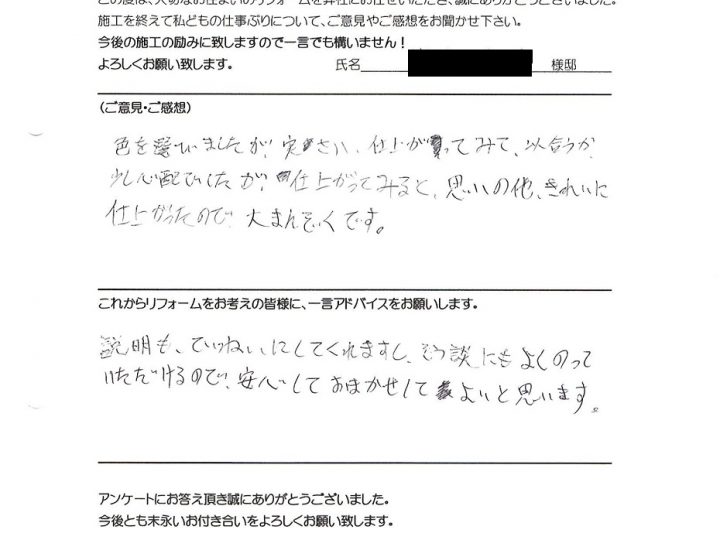 この度は、大切なお住まいのリフォームを弊社にお任せいただき、誠にありがとうございました。
施工を終えて私どもの仕事ぶりについて、ご意見やご感想をお聞かせ下さい。
今後の施工の励みに致しますので一言でも構いません！
よろしくお願い致します。 氏名 様邸
(ご意見・ご感想)
色を選びましたが、実さい、仕上がってみて、似合うか
少し心配でしたが、仕上がってみると、思いの他、きれいに
仕上がったので、大まんぞくです。
これからリフォームをお考えの皆様に、一言アドバイスをお願いします。
説明も、ていねいにしてくれますし、そう談にもよくのって
いただけるので、安心しておまかせしてよいと思います。
アンケートにお答え頂き誠にありがとうございました。
今後とも末永いお付き合いをよろしくお願い致します。